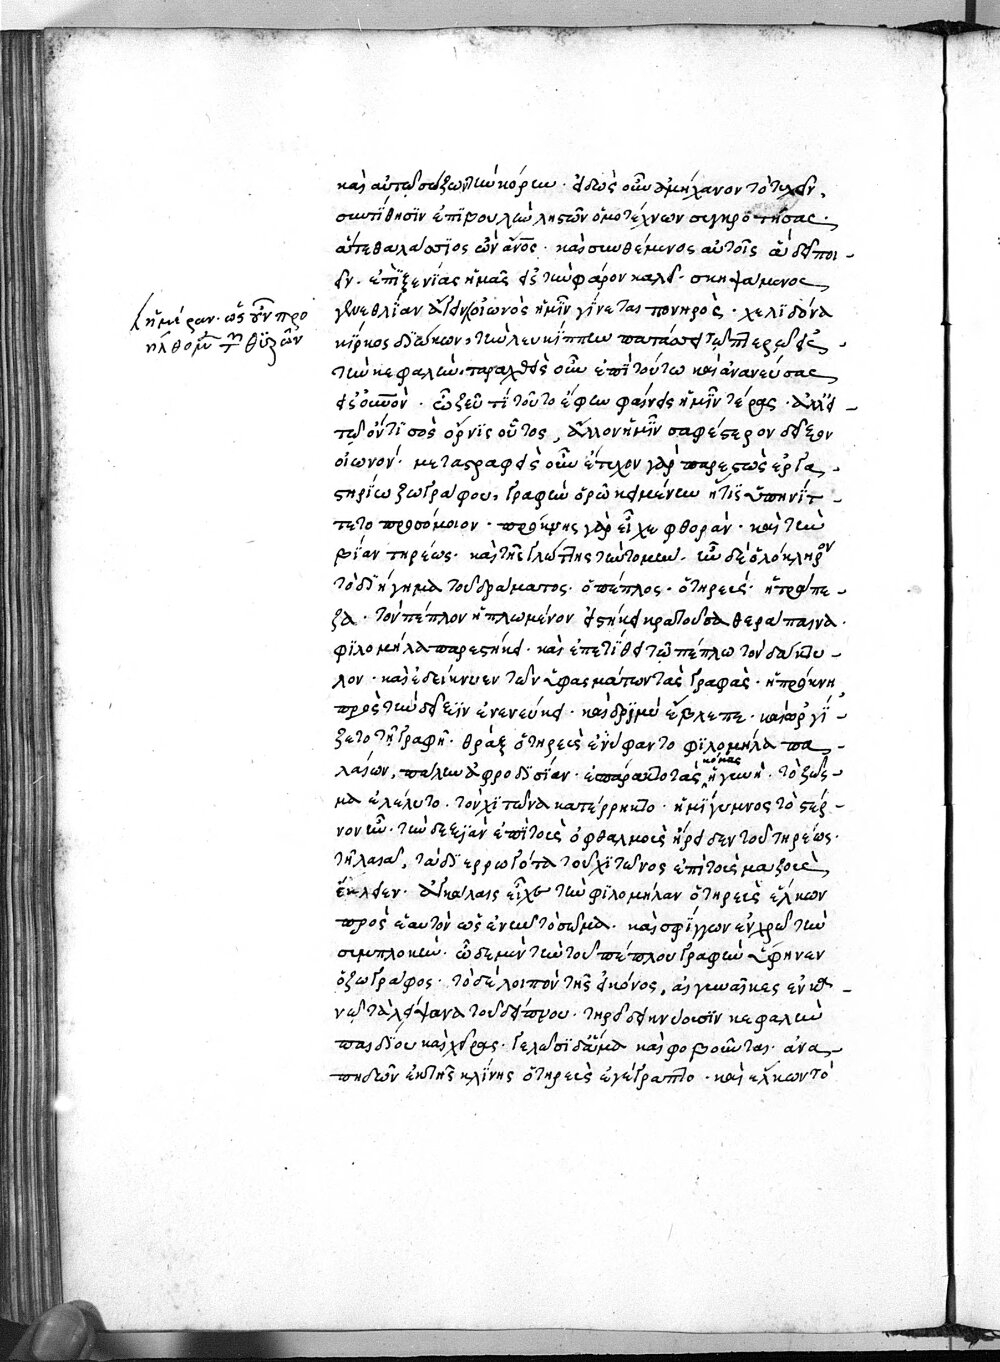 καὶ αὐτῷ σώζων τὴν κόρην. εἰδὼς οὖν ἀμήχανον τὸ τυχεῖν,
συντίθησιν ἐπιβουλὴν λῃστῶν ὁμοτέχνων συγκροτήσας·
ἅτε θαλάσσιος ὢν ἄνος· καὶ συνθέμενος αὐτοῖς ἃ δεῖ ποι-
εῖν. ἐπὶ ξενίας ἡμᾶς εἰς τὴν φάρον καλεῖ. σκηψάμενος
γενεθλίαν ἄγειν οἰωνὸς ἡμῖν γίνεται πονηρός· χελιδόνα
ἡμέραν. ὡς οὖν προ
ήλθομεν τῶν θυρῶν
κίρκος διώκων, τὴν λευκίππην πατάσσει τῷ πτερῷ εἰς
τὴν κεφαλὴν. ταραχθεὶς οὖν ἐπὶ τούτω καὶ ἀνανεύσας
εἰς οὐνὸν. ὦ ζεῦ τί τοῦτο ἔφην φαίνεις ἡμῖν τέρας. ἀλλ' εἰ
τῷ ὄντι σὸς ὄρνις οὗτος, ἄλλον ἡμῖν σαφέστερον δεῖξον
οἰωνόν. μεταστραφεὶς οὖν ἔτυχον γὰρ παρεστὼς ἐργα-
στηρίω ζωγράφου, γραφὴν ὁρῶ κειμένην ἥτις ὑπηνίτ-
τετο προσόμοιον. πρόκνης γὰρ εἶχε φθοράν. καὶ τὴν
βίαν τηρέως. καὶ τῆς γλώττης τὴν τομὴν. ἦν δὲ ὁλόκληρον
τὸ διήγημα τοῦ δράματος. ὁ πέπλος. ὁ τηρεύς. ἡ τράπε-
ζα. τὸν πέπλον ἡπλωμένον εἱστήκει κρατοῦσα θεράπαινα.
φιλομήλα παρειστήκει. καὶ ἐπετίθει τῷ πέπλω τὸν δάκτυ-
λον. καὶ ἐδείκνυεν τῶν ὑφασμάτων τὰς γραφάς. ἡ πρόκνη
πρὸς τὴν δεῖξιν ἐνενεύκει. καὶ δριμὺ ἔβλεπε. καὶ ὠργί-
ζετο τῇ γραφῇ. θρᾲξ ὁ τηρεὺς ἐνύφαντο φιλομήλα πα-
λαίων, πάλην ἀφροδισίαν. ἐσπάρακτο τὰς κόμας ἡ γυνή. τὸ ζῶς-
μα ἐλέλυτο. τὸν χιτῶνα κατέρρηκτο. ἡμίγυμνος τὸ στέρ-
νον ἦν. τὴν δεξιὰν ἐπὶ τοὺς ὀφθαλμοὺς ἤρειδεν τοῦ τηρέως.
τῇ λαιᾷ, τὰ διερρωγότα τοῦ χιτῶνος ἐπὶ τοὺς μαζοὺς
ἔκλειεν. ἀγκάλαις εἶχε τὴν φιλομήλαν ὁ τηρεὺς ἕλκων
πρὸς ἑαυτὸν ὡς ἐνῆν τὸ σῶμα. καὶ σφίγγων ἐν χρῷ τὴν
συμπλοκὴν. ὧδε μὲν τὴν τοῦ πέπλου γραφὴν ὕφηνεν
ὁ ζωγράφος. τὸ δὲ λοιπὸν τῆς εἰκόνος, αἱ γυναῖκες ἐν κα-
νῷ τὰ λείψανα τοῦ δείπνου. τηρεῖ δεικνύουσιν κεφαλὴν
παιδίου καὶ χεῖρας. γελῶσι δ' ἅμα καὶ φοβοῦνται. ἀνα-
πηδῶν ἐκ τῆς κλίνης ὁ τηρεὺς ἐγέγραπτο. καὶ ἕλκων τὸ